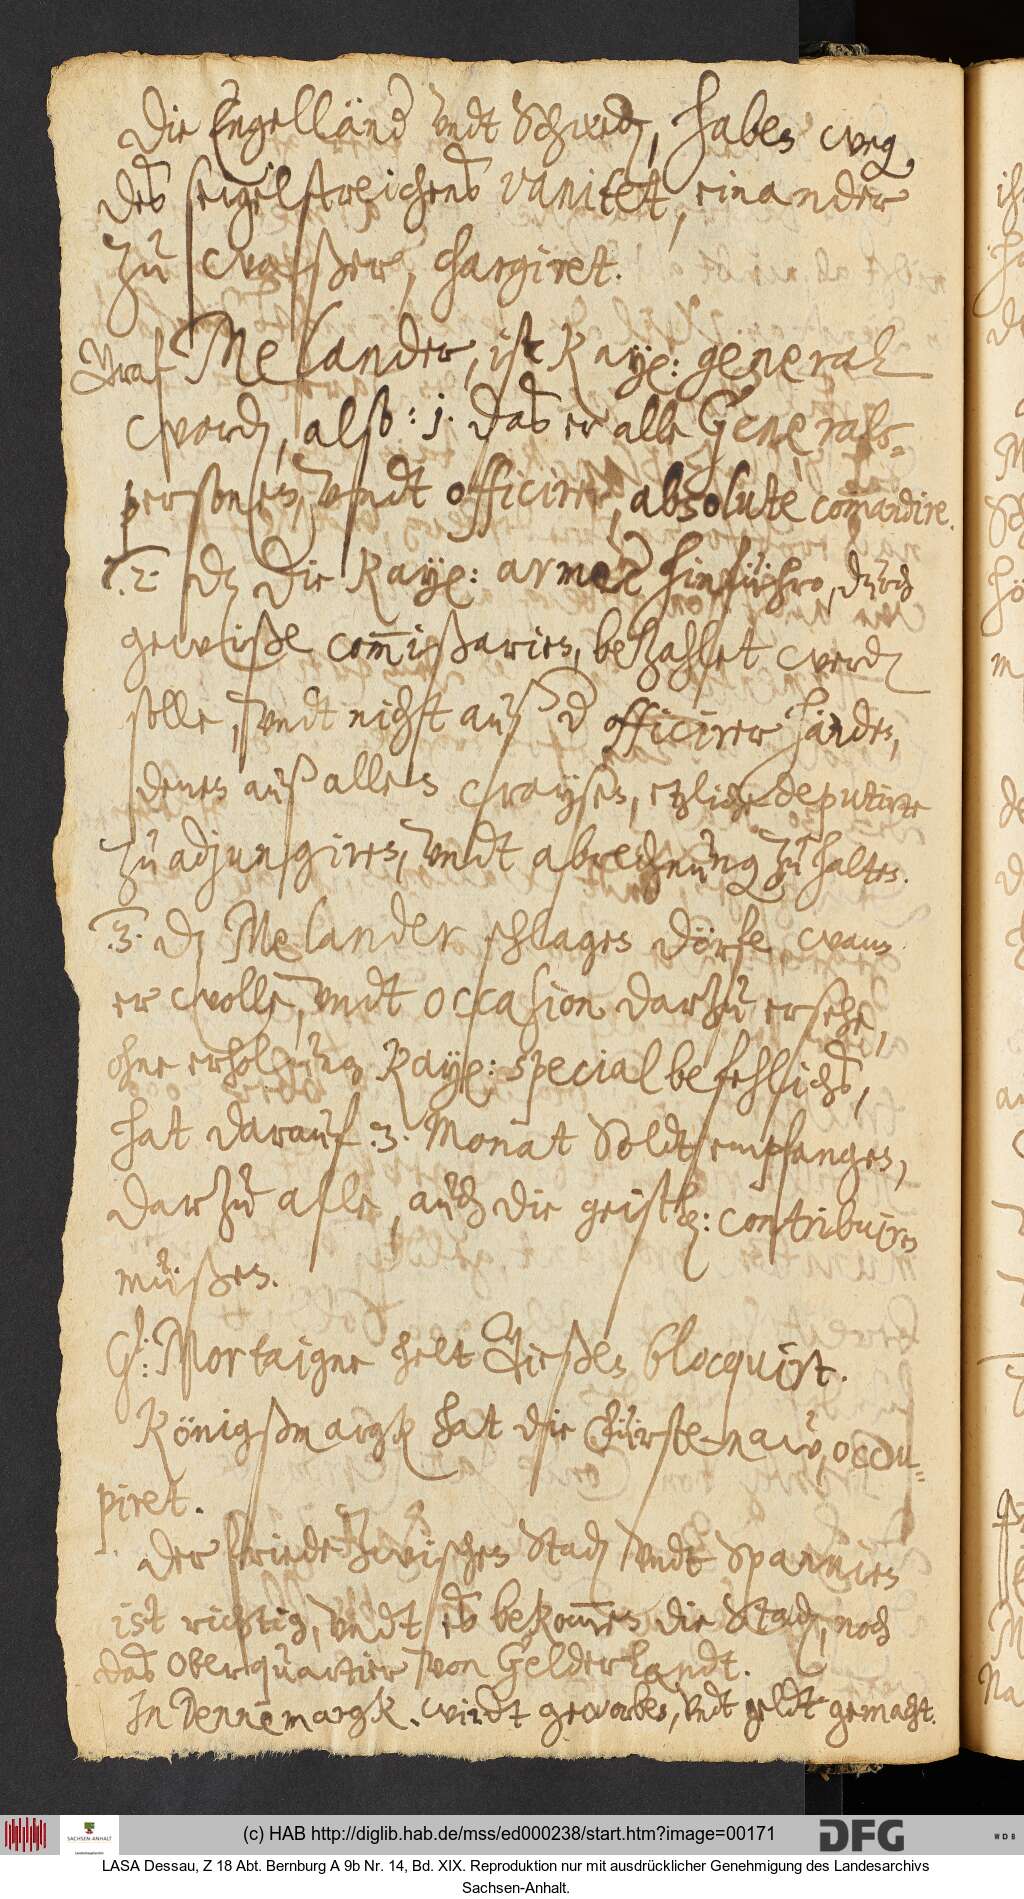 Die Engelländ[er] undt Schwed[en], haben weg[en]
des seigelstreichens vanitet, einander
zu waßer, chargiret.
Graf Melander, ist Kay[serlicher]: general
word[en], also: 1. das er alle Generals-
personen, undt officirer, absolute com̄andire.
2. d[aß] die Kay[serliche]: armèe hinführo, durch
gewiße com̄ißarien, bezahlet werd[en]
solle, undt nicht auß d[er] officirer händen,
denen auß allen Crayßen, etzliche deputirte
zu adjungiren, undt abrechnung zu halten.
3. d[aß] Melander schlagen dörfe, wann
er wolle, undt occasion darzu ersehe,
ohne erholung Kay[serlichen]: special befehlichs,
hat darauf 3. Monat Soldt empfangen,
darzu alle, auch die geistl[ichen]: contribuiren
müßen.
G[enera]l: Mortaigne helt Gießen blocquirt.
Königßmargk hat die Fürstenaw, occu-
piret.
Der friede zwischen Stad[en] undt Spannien
ist richtig, undt es bekom̄en die Stad[en], noch
das Oberquartier von Gelderlandt.
In Dennemargk, wirdt geworben, undt geldt gemacht.
(c) HAB http://diglib.hab.de/mss/ed000238/start.htm?image=00171
SACHSEN-ANHALT
DFG
WDB
LASA Dessau, Z 18 Abt. Bernburg A 9b Nr. 14, Bd. XIX. Reproduktion nur mit ausdrücklicher Genehmigung des Landesarchivs
Sachsen-Anhalt.